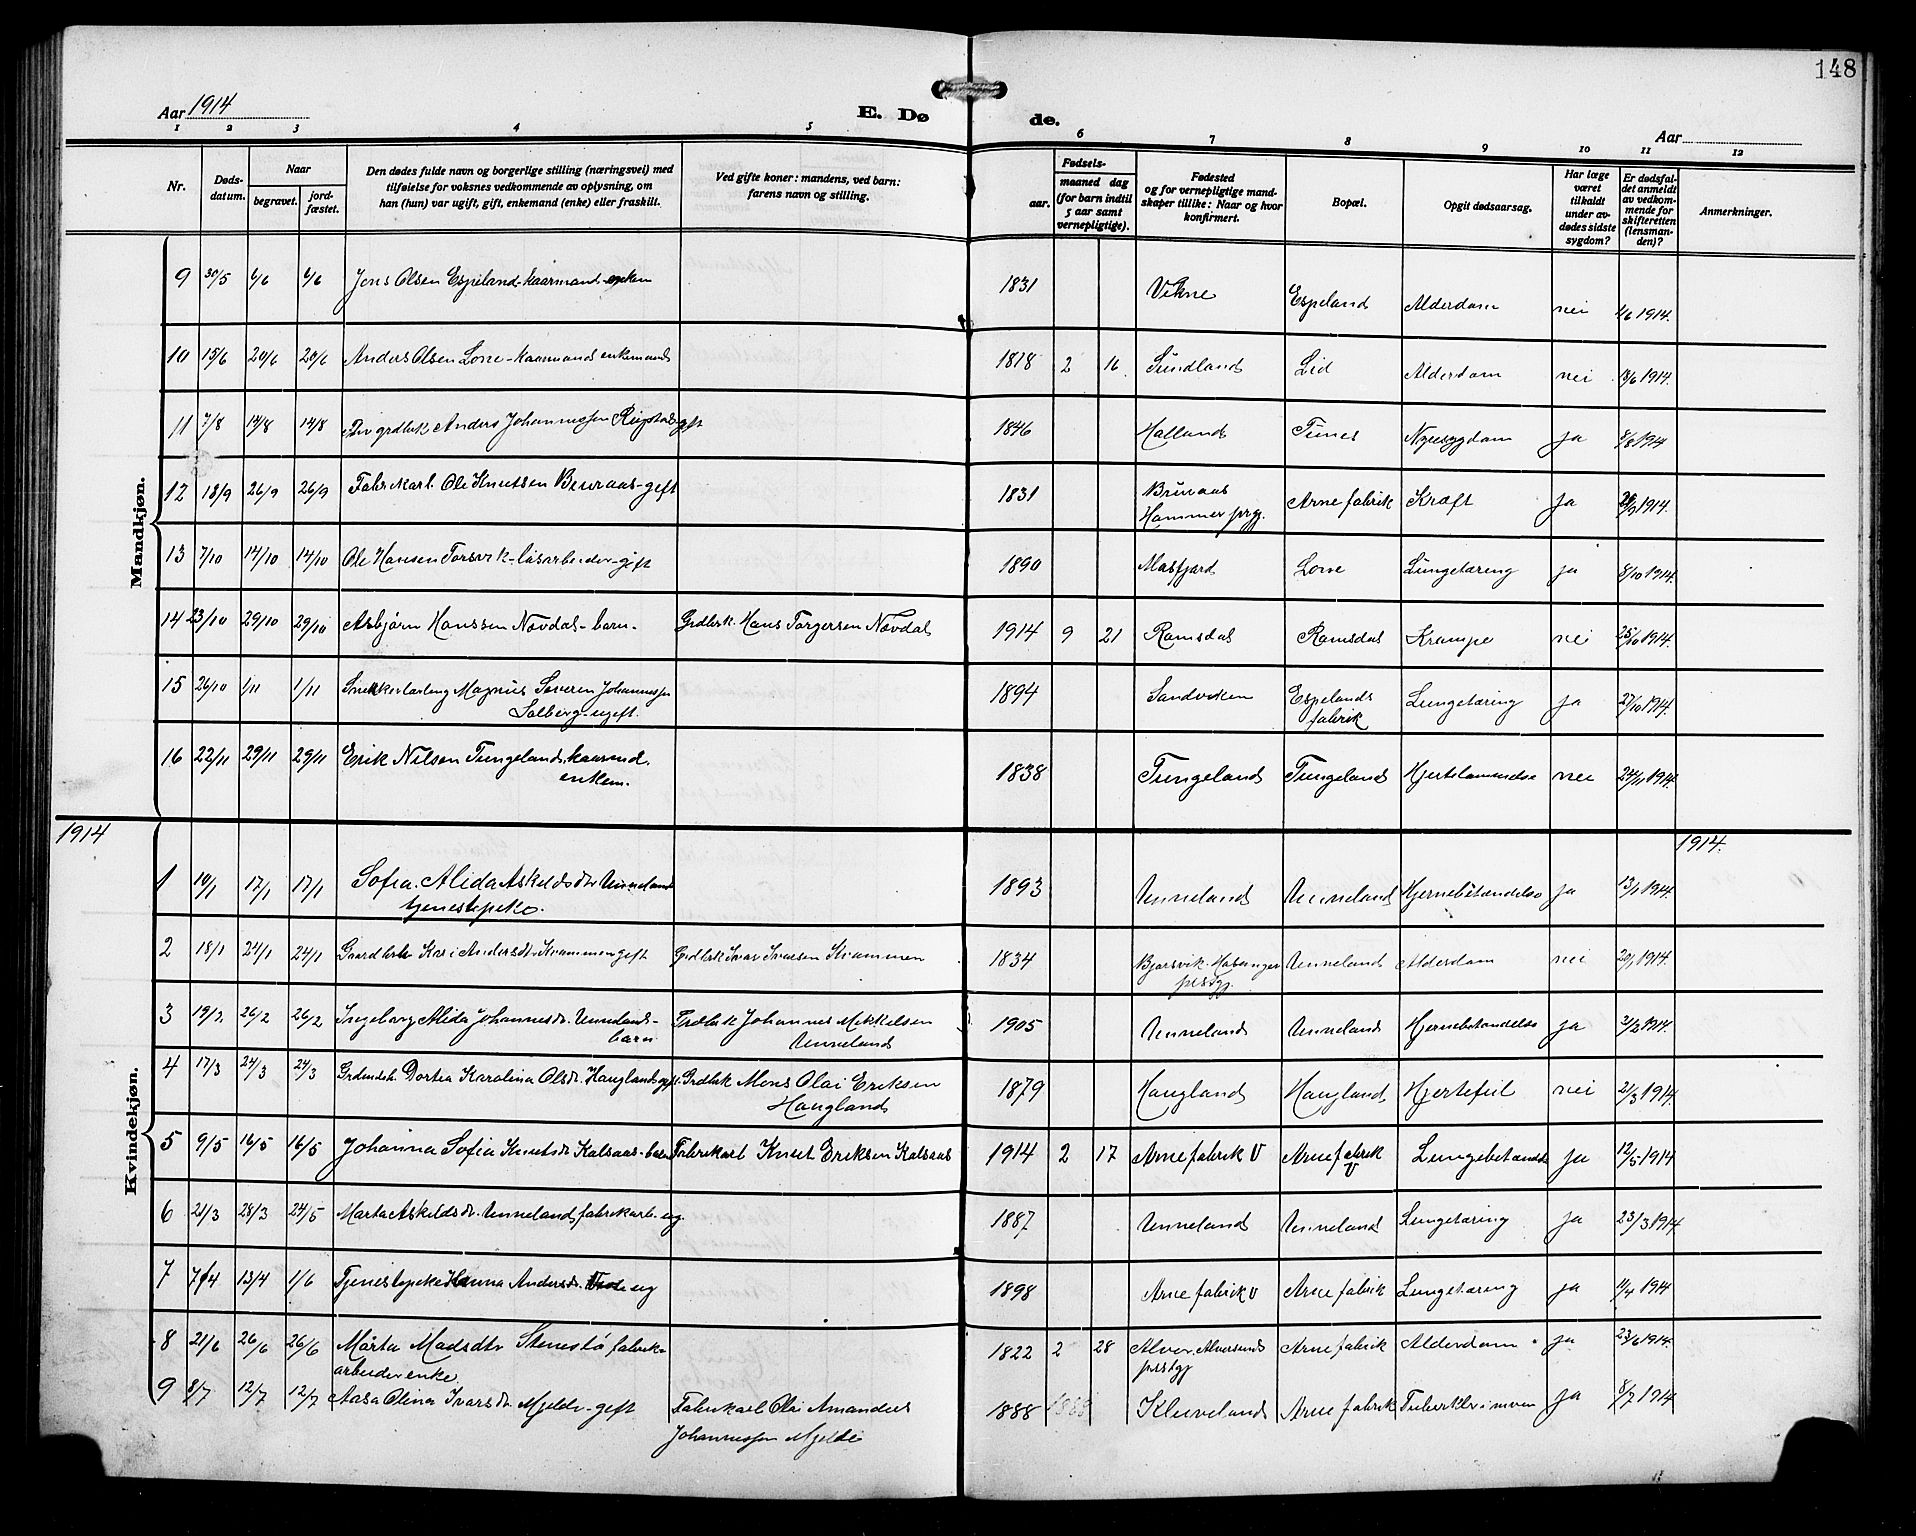 148
Aar 1914
E. Dø de.
Aar
1 2 3 4 5 6 7 8 9 10 11 12
Nr.
Døds-
datum.
Naar
begravet.
jord-
fæstet.
Den dødes fulde navn og borgerlige stilling (næringsvei) med
tilføielse for voksnes vedkommende av oplysning, om
han (hun) var ugift, gift, enkemand (enke) eller fraskilt.
Ved gifte koner: mandens, ved barn:
farens navn og stilling.
Fødsels-
aar.
maaned dag
(for barn indtil
5 aar samt
vernepligtige).
Fødested
og for vernepligtige mand-
skaper tillike: Naar og hvor
konfirmert.
Bopæl.
Opgit dødsaarsag.
Har læge
været
tilkaldt
under av-
dødes sidste
sygdom?
Er dødsfal-
det anmeldt
av vedkom-
mende for
skifteretten
(lensman-
den)?
Anmerkninger.
Mandkjøn.
9 30/5 6/6 6/6 Jens Olsen Espeland-kaarmand-enkem 1831 Vikne Espeland Alderdom nei 1/6 1914.
10 15/6 20/6 20/6 Anders Olsen Lone-kaarmand enkemand 1818 2 16. Sundland Lid Alderdom nei 18/6 1914.
11 7/8 14/8 14/8 grdbrk Anders Johannessen gift 1846 Halland Tunes Nyresygdom ja 8/8 1914
12 18/9 26/9 26/9 Fabrikarb. Ole Knutsen Bruraas-gift 1831 Bruraas
Hammer prgj. Arne fabrik Kræft ja /9 1914.
13 7/10 14/10 14/10 Ole Hansen Torsvik-løsarbeider-gift 1890 Masfjord Lone Lungetæring ja 8/10 1914.
14 23/10 29/10 29/10 Asbjørn Hanssen Nøvdal-barn- Grdbrk. Hans Torgersen Nøvdal 1914 9 21 Ramsdal Ramsdal Krampe nei 25/10 1914.
15 26/10 1/11 1/11 Snekkerlærling Magnus Severin Johannessen
Solberg-ugift. 1894 Sandviken Espelands
fabrik Lungetæring ja 27/10 1914.
16 22/11 29/11 29/11 Erik Nilsen Tungeland, kaarmd.
enkem. 1838 Tungeland Tungeland Hjertelammelse nei 24/11 1914.
1914
1914.
Kvindekjøn.
1 10/1 17/1 17/1 Sofia Alida Askeldsdtr Unneland
tjenestepike. 1893 Unneland Unneland Hjernebetændelse ja 13/1 1914.
2 18/1 24/1 24/1 Kari Andersdtr. Kvammen gift Grdbrk Ivar Ivarsen Kvammen 1834 Bjørsvik. Hosanger
prstgj. Unneland Alderdom nei 20/1 1914.
3 19/2 26/2 26/2 Ingeborg Alida Johannesdr. Unneland-
barn Johannes Mikkelsen
Unneland 1905 Unneland Unneland Hjernebetændelse ja 21/2 1914.
4 17/3 24/3 24/3 Dortea Karolina Olsdr. Haugland gift. Grdbrk Mons Olai Eriksen
Haugland 1879 Haugland Haugland Hjertefeil nei 21/3 1914.
5 9/5 16/5 16/5 Johanna Sofia Knutsdr Kalsaas-barn Fabrikarb Knut Eriksen Kalsaas 1914 2 17 Arne fabrik V Arne fabrik
V Lungebetændelse ja 12/5-1914
6 21/3 28/3 24/5 Marta Askeldsdr. Unneland fabrikarb-ug 1887 Unneland Unneland Lungetæring ja 23/3 1914
7 7/4 13/4 1/6 Tjenestepike Hanna Andersdr. ug 1898 Arne fabrik V Arne fabrik Lungetæring ja 11/4 1914
8 21/6 26/6 26/6 Märta Madsdtr Stenestø fabrik-
arbeider enke. 1822 2 28 Alver. Alversunds
prstgj Arne fabrik Alderdom ja 23/6 1914.
9 8/7 12/7 12/7 Aasa Olina Ivarsdr. Mjelde-gift Fabrikarb Olai Amandus
Johannessen Mjelde 1888 1888 Kluveland Arne fabrik ja 8/7 1914